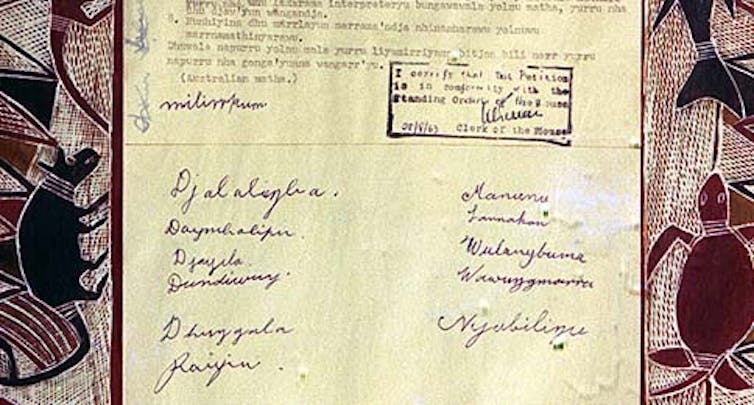 interpreteryu bungawawala yolnu matha, yurru nha
wangandja.
8. Nunhiyina dhu marrlayun marrama'ndja nhinanharawu yolnuwu
marrnamathinyarawu.
Dhuwala napurru yolnu mala yurru liyamirriyama bitjan bili marr yurru
napurru nha gonga'yunna wangarr'yu.
(Australian matha.)
I certify that this Petition
is in conformity with the
Standing Orders of the House
Clerk of the House
milirrpum
Djalalingba.
Daymbalipu.
Djayila.
Dundiwuy.
Dhuygala
Raiyin.
Manunu
Larrakan
Wulanybuma
Wawunygmarra
Nyabilingu